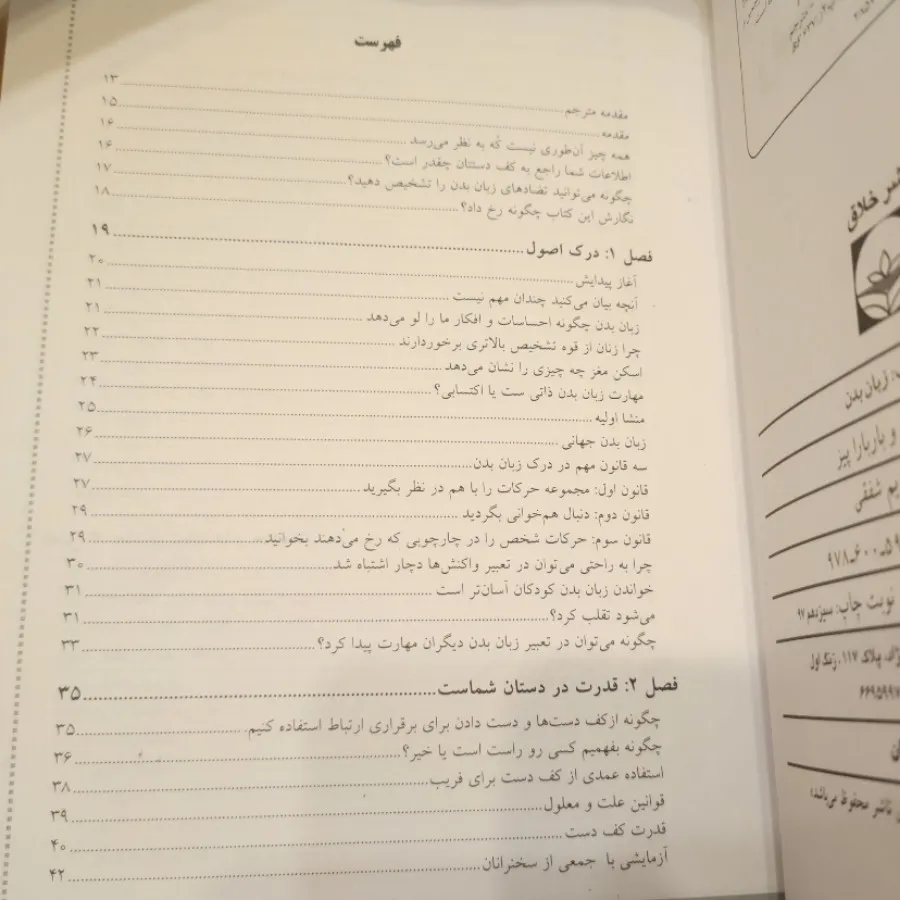 فهرست
مقدمه مترجم ۱۳
مقدمه ۱۵
همه چیز آن‌طوری نیست که به نظر می‌رسد ۱۶
اطلاعات شما راجع به کف دستتان چقدر است؟ ۱۶
چگونه می‌توانید تضادهای زبان بدن را تشخیص دهید؟ ۱۷
نگارش این کتاب چگونه رخ داد؟ ۱۸
فصل ۱: درک اصول ۱۹
آغاز پیدایش ۲۰
آنچه بیان می‌کنید چندان مهم نیست ۲۱
زبان بدن چگونه احساسات و افکار ما را لو می‌دهد ۲۱
چرا زنان از قوه تشخیص بالاتری برخوردارند ۲۲
اسکن مغز چه چیزی را نشان می‌دهد ۲۳
مهارت زبان بدن ذاتی ست یا اکتسابی؟ ۲۴
منشا اولیه ۲۵
زبان بدن جهانی ۲۶
سه قانون مهم در درک زبان بدن ۲۷
قانون اول: مجموعه حرکات را با هم در نظر بگیرید ۲۷
قانون دوم: دنبال هم‌خوانی بگردید ۲۹
قانون سوم: حرکات شخص را در چارچوبی که رخ می‌دهند بخوانید ۲۹
چرا به راحتی می‌توان در تعبیر واکنش‌ها دچار اشتباه شد ۳۰
خواندن زبان بدن کودکان آسان‌تر است ۳۱
می‌شود تقلب کرد؟ ۳۱
چگونه می‌توان در تعبیر زبان بدن دیگران مهارت پیدا کرد؟ ۳۳
فصل ۲: قدرت در دستان شماست ۳۵
چگونه ازکف دست‌ها و دست دادن برای برقراری ارتباط استفاده کنیم ۳۵
چگونه بفهمیم کسی رو راست است یا خیر؟ ۳۶
استفاده عمدی از کف دست برای فریب ۳۸
قوانین علت و معلول ۳۹
قدرت کف دست ۴۰
آزمایشی با جمعی از سخنرانان ۴۲
خلاق
زبان بدن
و باربارا پیز
شفقی
۹۷۸-۶۰۰-
نوبت چاپ: سیزدهم ۹۷
پلاک ۱۱۷، زنگ اول
۶۶۹۵۹۹۷
ناشر محفوظ می‌باشد